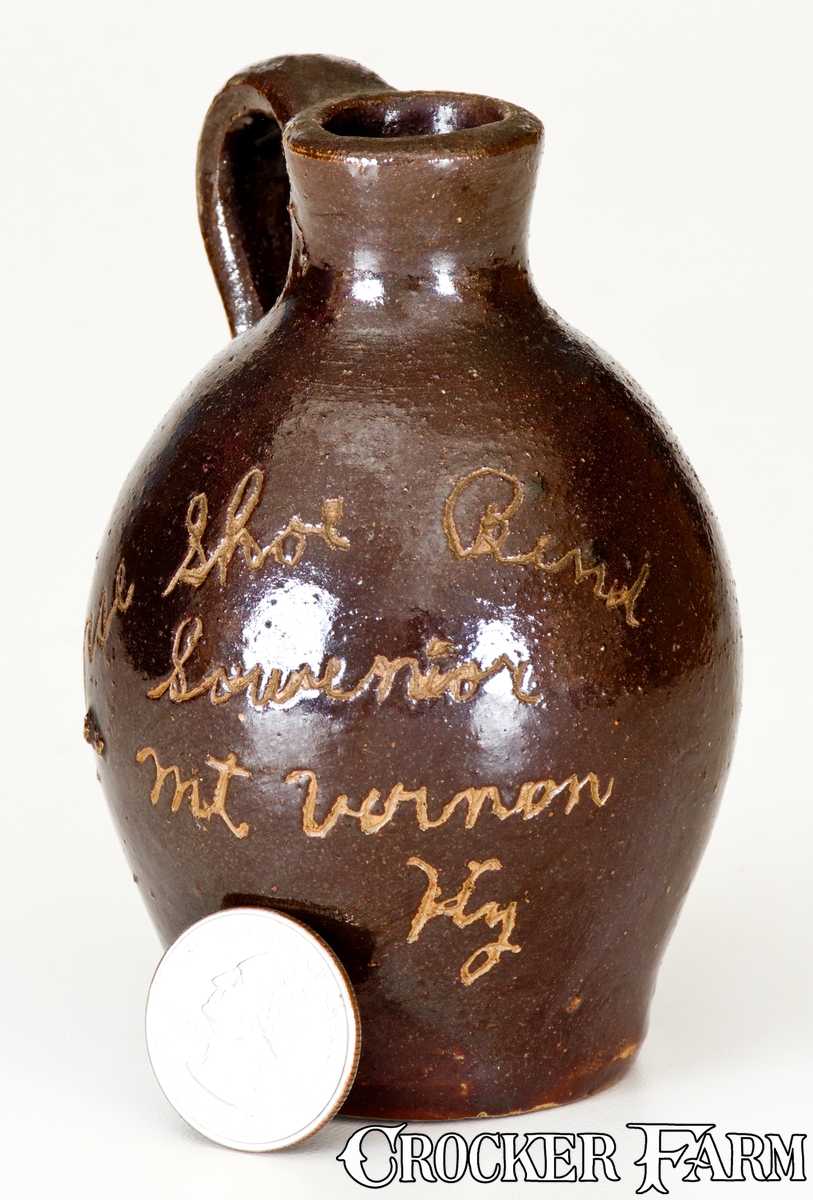 Shoe Bend
Souvenior
Mt Vernon
Ky
CROCKER FARM